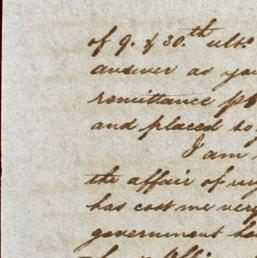 of 9. & 30.th ulto
answer as you
remittance
and placed to
I am
the affair of my
has cost me very
government ha